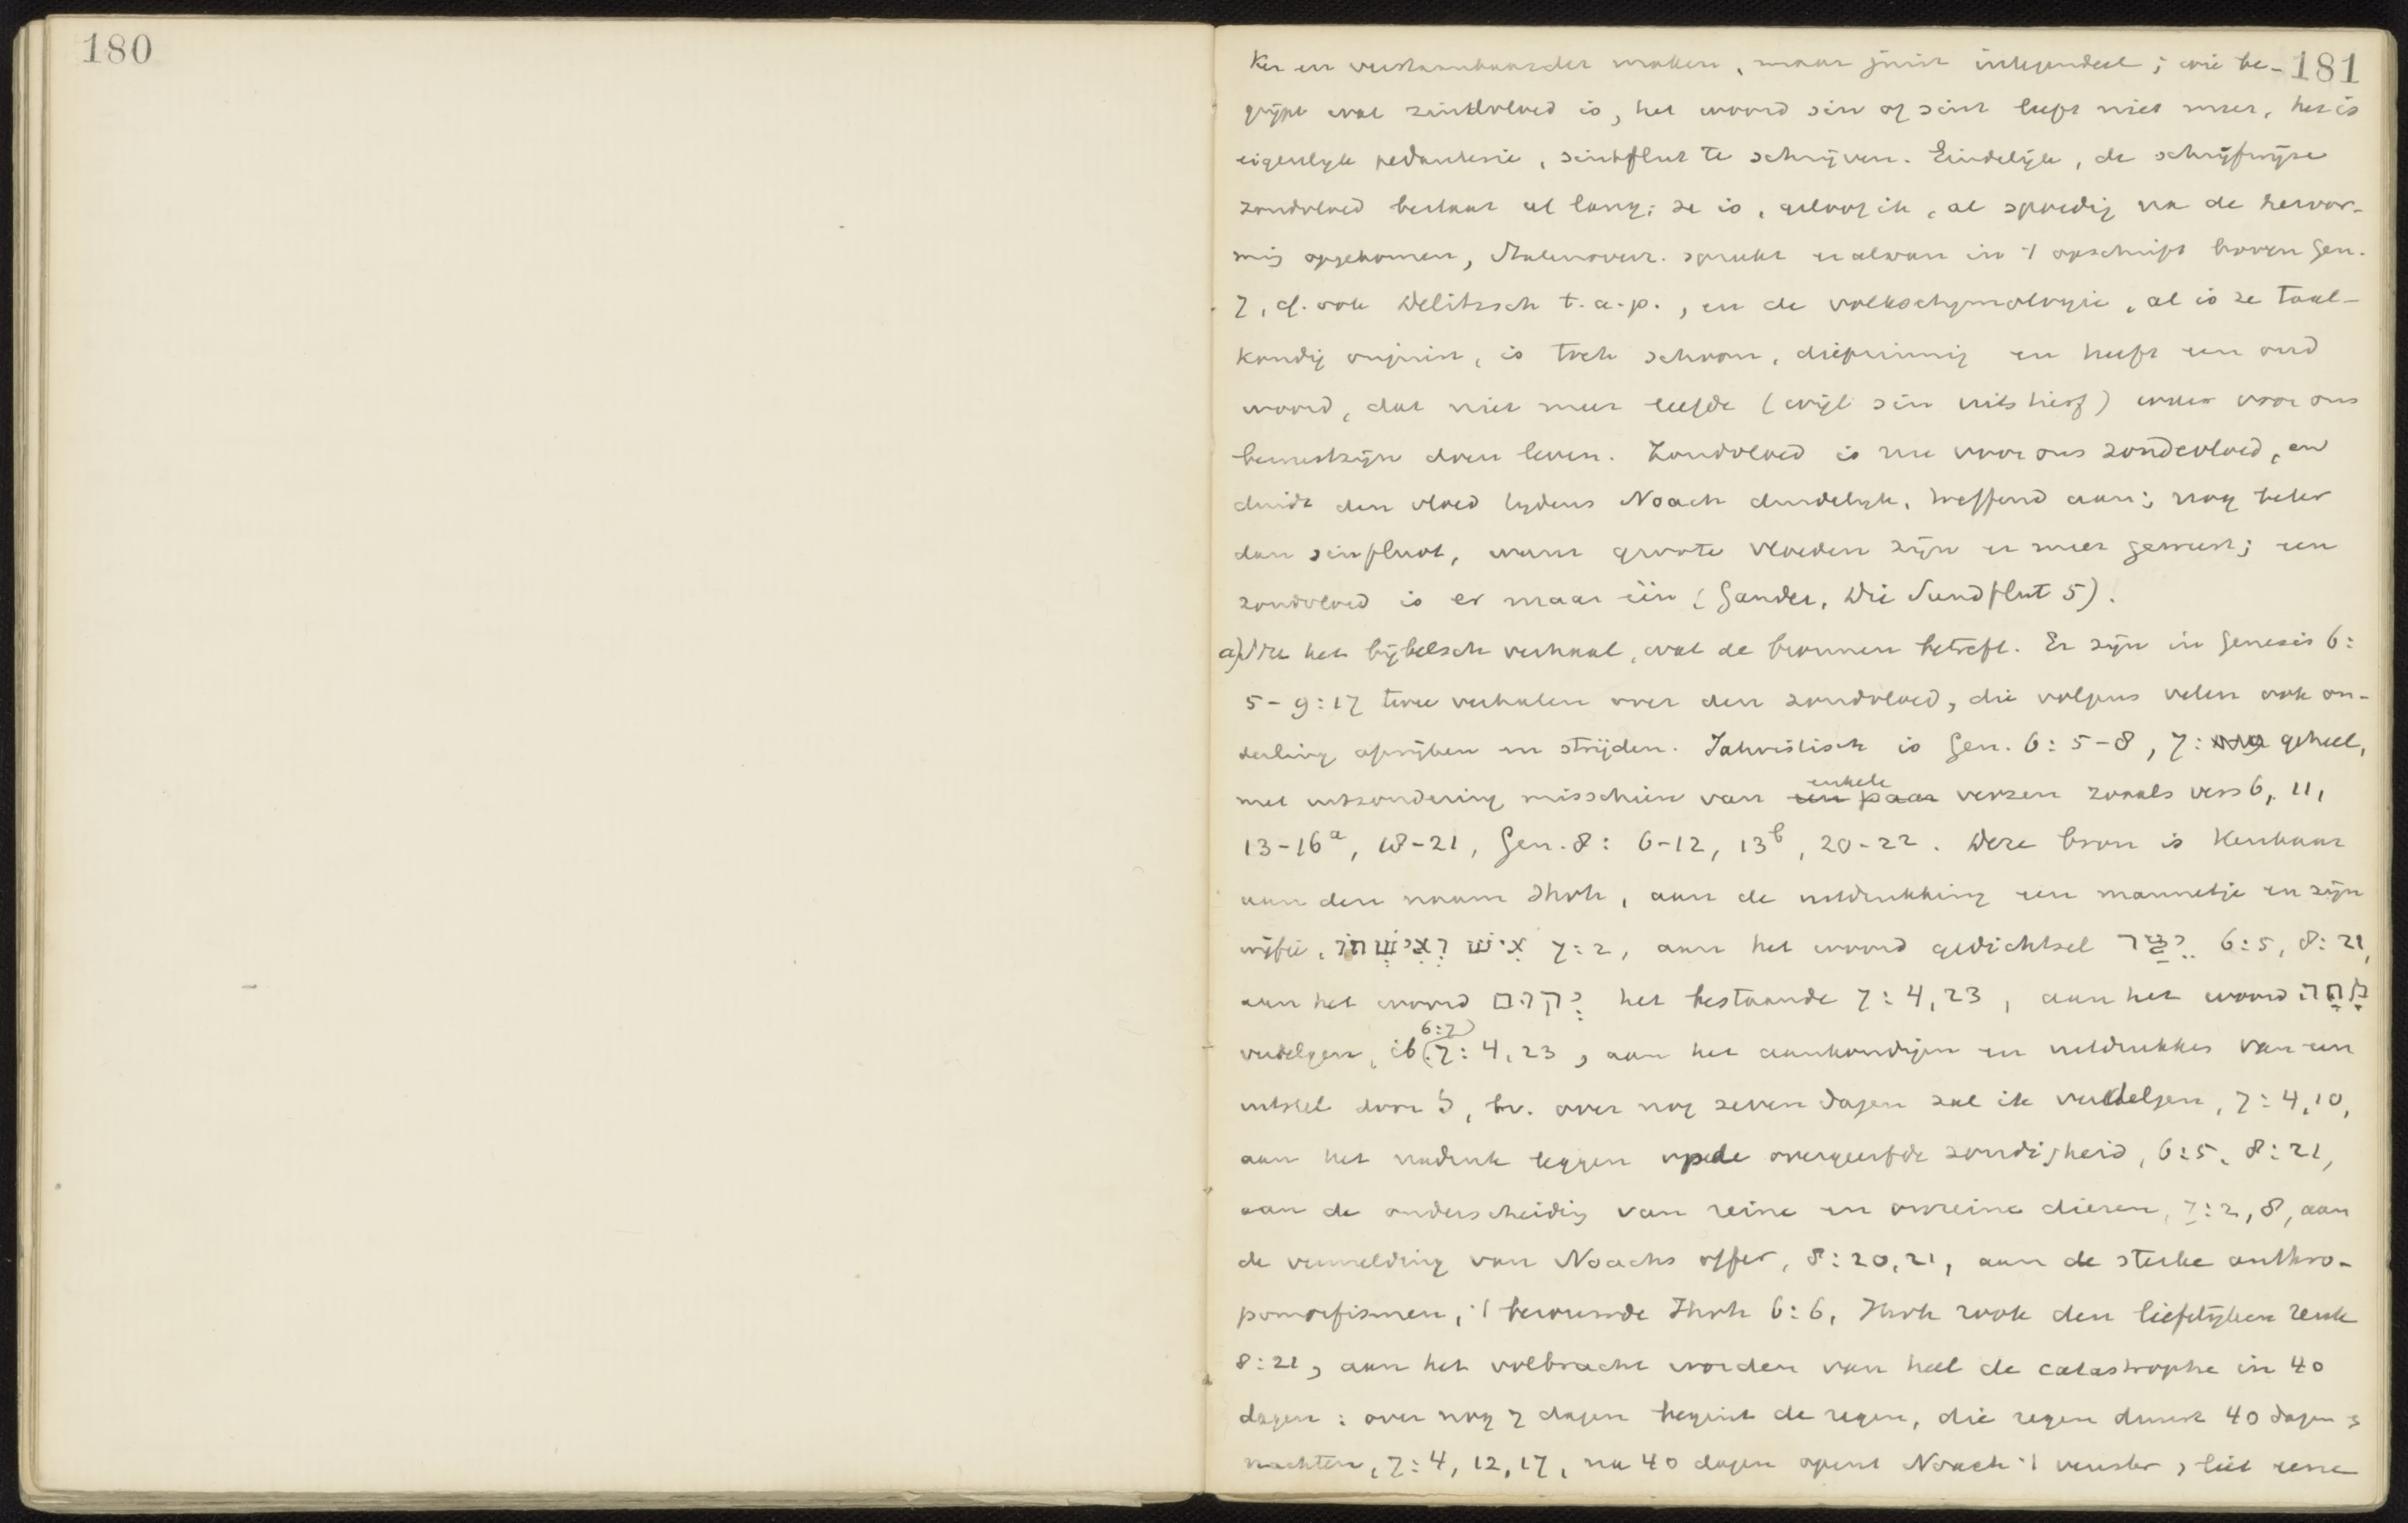 180
181
ker en verstaanbaarder maken, maar juist integendeel; wie be-
grijpt wat zintvloed is, het woord sin of sint leeft niet meer, het is
eigenlijk pedanterie, sintflut te schrijven. Eindelijk, de schrijfwijze
zondvloed bestaat al lang; ze is, geloof ik, al spoedig na de hervor-
ming opgekomen, Statenvert. spreekt er alvan in 't opschrift boven Gen.
7, cf. ook Delitzsch t.a.p., en de volksetymologie, al is ze taal-
kundig onjuist, is toch schoon, diepzinnig en heeft een oud
woord, dat niet meer leefde (wijl sin uitstierf) weer voor ons
bewustzijn doen leven. Zondvloed is nu voor ons zondevloed, en
duidt den vloed tijdens Noach duidelijk, treffend aan; nog beter
dan sinfluot, want groote vloeden zijn er meer geweest; een
zondvloed is er maar één (Gander, Die Sundflut 5).
a) Nu het bijbelsch verhaal, wat de bronnen betreft. Er zijn in Genesis 6:
5-9:17 twee verhalen over den zondvloed, die volgens velen ook on-
derling afwijken en strijden. Jahvistisch is Gen. 6: 5-8, 7: geheel,
met uitzondering misschien van een paar enkele verzen zooals vers 6, 11,
13-16a, 18-21, Gen. 8: 6-12, 13b, 20-22. Deze bron is kenbaar
aan den naam Jhvh, aan de uitdrukking een mannetje en zijn
wijfie, אִישׁ וְאִשְׁתּוֹ 7:2, aan het woord gedichtsel יֵצֶר 6:5, 8:21,
aan het woord יְקוּם het bestaande 7:4, 23, aan het woord מָחָה
verdelgen, ib (6:7) 7:4, 23, aan het aankondigen en uitdrukken van een
uitstel door ל, bv. over nog zeven dagen zal ik verdelgen, 7:4, 10,
aan het nadruk leggen op de overgeerfde zondigheid, 6:5, 8:21,
aan de onderscheiding van reine en onreine dieren, 7:2, 8, aan
de vermelding van Noachs offer, 8:20, 21, aan de sterke anthro-
pomorfismen, 't berouwde Jhvh 6:6, Jhvh rook den liefelijken reuk
8:21, aan het volbracht worden van heel de catastrophe in 40
dagen: over nog 7 dagen begint de regen, die regen duurt 40 dagen &
nachten, 7:4, 12, 17, na 40 dagen opent Noach 't venster, liet eene